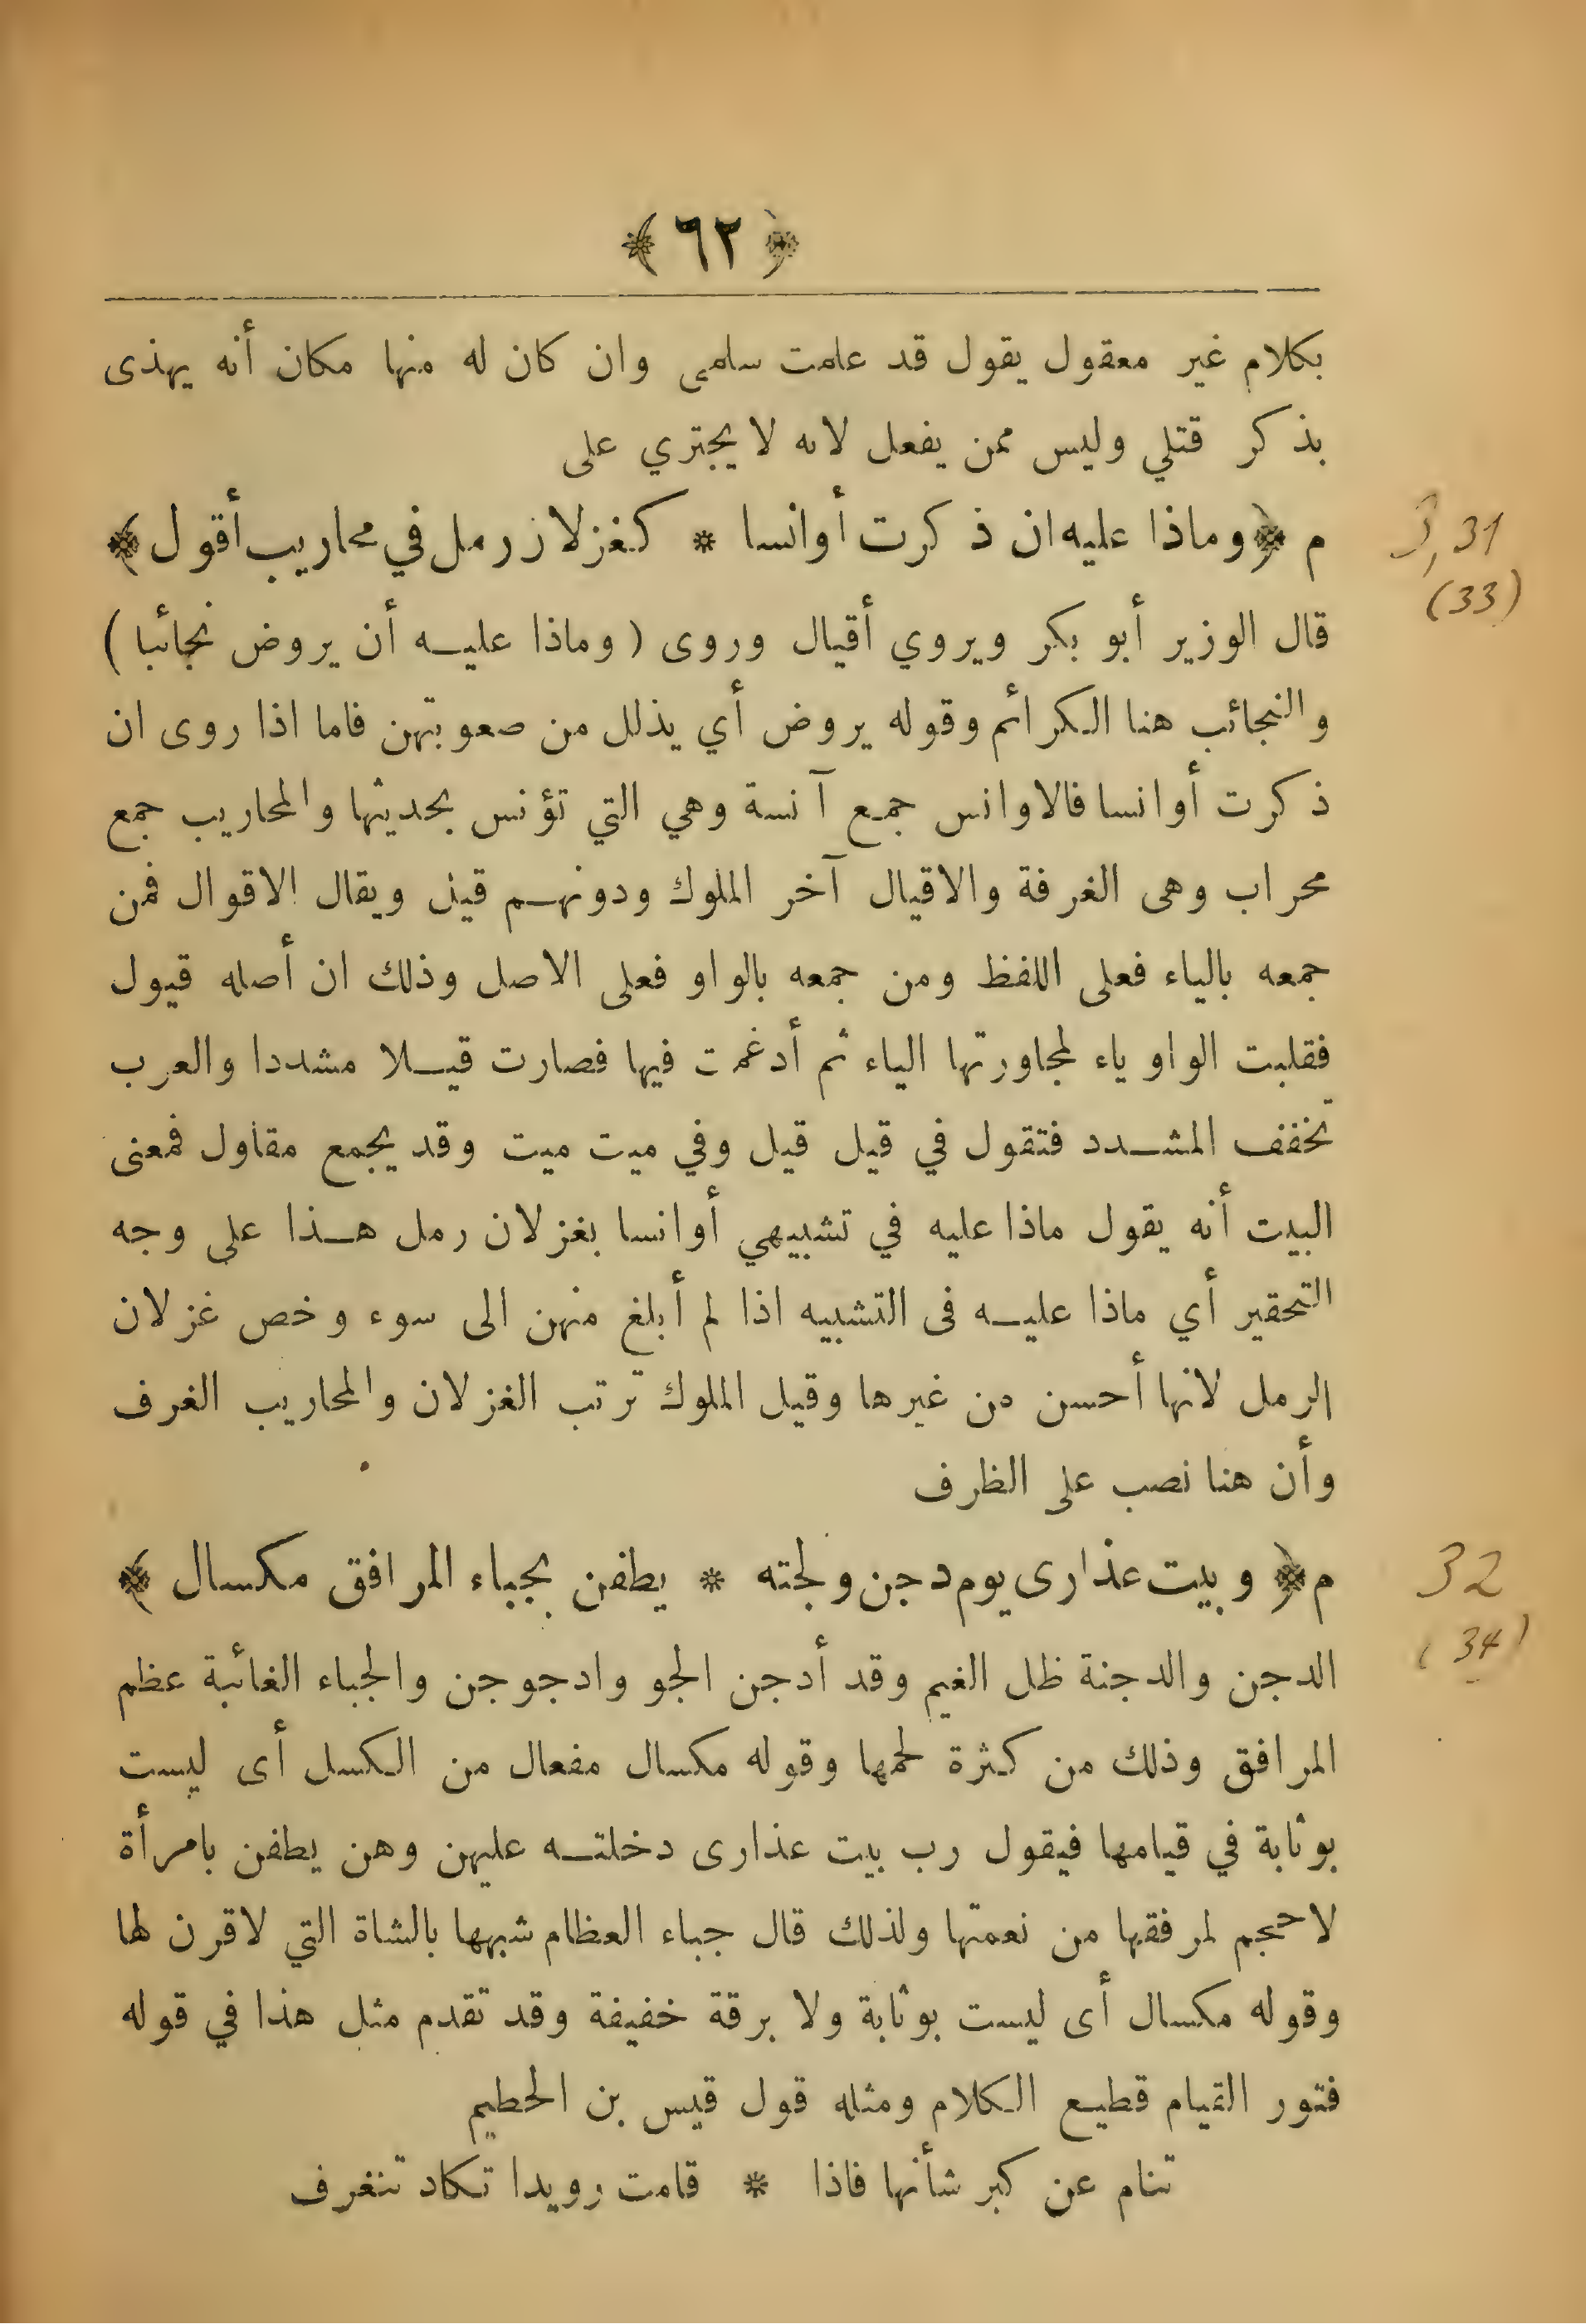 ﴿ ٦٢ ﴾
بكلام غير معقول يقول قد علمت سلمى وان كان له منها مكان أنه يهذى
بذكر قتلي وليس ممن يفعل لانه لا يجتري على
م ﴿ وماذا عليه ان ذكرت أوانسا * كغزلان رمل في محاريب أقول ﴾
3,31
(33)
قال الوزير أبو بكر ويروي أقيال وروى ( وماذا عليه أن يروض نجائبا )
والنجائب هنا الكرائم وقوله يروض أي يذلل من صعوبتهن فاما اذا روى ان
ذكرت أوانسا فالاوانس جمع آنسة وهي التي تؤنس بحديثها والمحاريب جمع
محراب وهى الغرفة والاقيال آخر الملوك ودونهم قيل ويقال الاقوال فمن
جمعه بالياء فعلى اللفظ ومن جمعه بالواو فعلى الاصل وذلك ان أصله قيول
فقلبت الواو ياء لمجاورتها الياء ثم أدغمت فيها فصارت قيلا مشددا والعرب
تخفف المشدد فتقول في قيل قيل وفي ميت ميت وقد يجمع مقاول فمعنى
البيت أنه يقول ماذا عليه في تشبيهي أوانسا بغزلان رمل هذا على وجه
التحقير أي ماذا عليه فى التشبيه اذا لم أبلغ منهن الى سوء وخص غزلان
الرمل لانها أحسن من غيرها وقيل الملوك ترتب الغزلان والمحاريب الغرف
وأن هنا نصب على الظرف
م ﴿ وبيت عذارى يوم دجن ولجته * يطفن بجباء المرافق مكسال ﴾
32
(34)
الدجن والدجنة ظل الغيم وقد أدجن الجو وادجوجن والجباء الغائبة عظم
المرافق وذلك من كثرة لحمها وقوله مكسال مفعال من الكسل أى ليست
بوثابة في قيامها فيقول رب بيت عذارى دخلته عليهن وهن يطفن بامرأة
لا حجم لمرفقها من نعمتها ولذلك قال جباء العظام شبهها بالشاة التي لا قرن لها
وقوله مكسال أى ليست بوثابة ولا برقة خفيفة وقد تقدم مثل هذا في قوله
فتور القيام قطيع الكلام ومثله قول قيس بن الحطيم
تنام عن كبر شأنها فاذا * قامت رويدا تكاد تنغرف